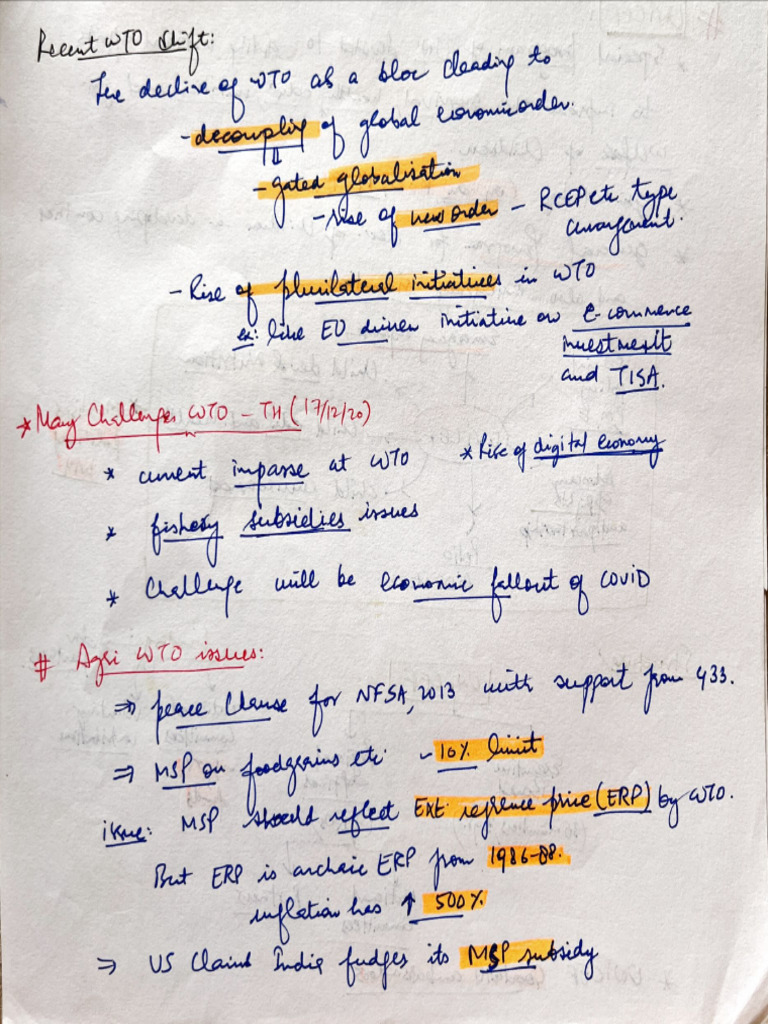 Recent WTO Shift:
The decline of WTO as a bloc leading to
- decoupling of global economic order.
- gated globalisation
- rise of new order - RCEP etc type
arrangement.
- Rise of plurilateral initiatives in WTO
ex: like EU driven initiative on E-commerce
investment
and TISA.
* Many Challenges WTO - TH (17/12/20)
* current impasse at WTO * Rise of digital economy
* fishery subsidies issues
* Challenge will be economic fallout of COVID
# Agri WTO issues:
⇒ peace Clause for NFSA, 2013 with support from G33.
⇒ MSP on foodgrains etc - 10% limit
issue: MSP should reflect Ext: refrence price (ERP) by WTO.
But ERP is archaic ERP from 1986-88.
inflation has ↑ 500%
⇒ US Claims India fudges its MSP subsidy